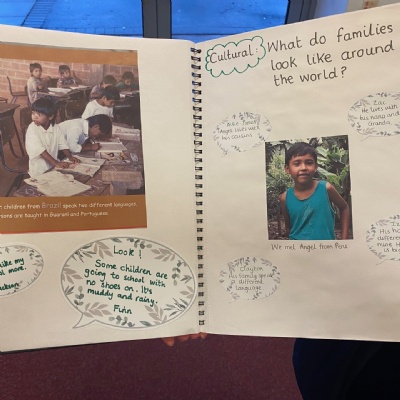 children from Brazil speak two different languages.
are taught in Guarani and Portuguese.
like my
more.
Look!
Some children are
going to school with
no shoes on. It's
muddy and rainy.
Finn
Cultural:
What do families
look like around
the world?
Angel lives with
his cousins
Zac
He lives with
his nanny and
Grandad
We met Angel from Peru
Clayton
His family speak
a different
language
His
different
mine. H
is b